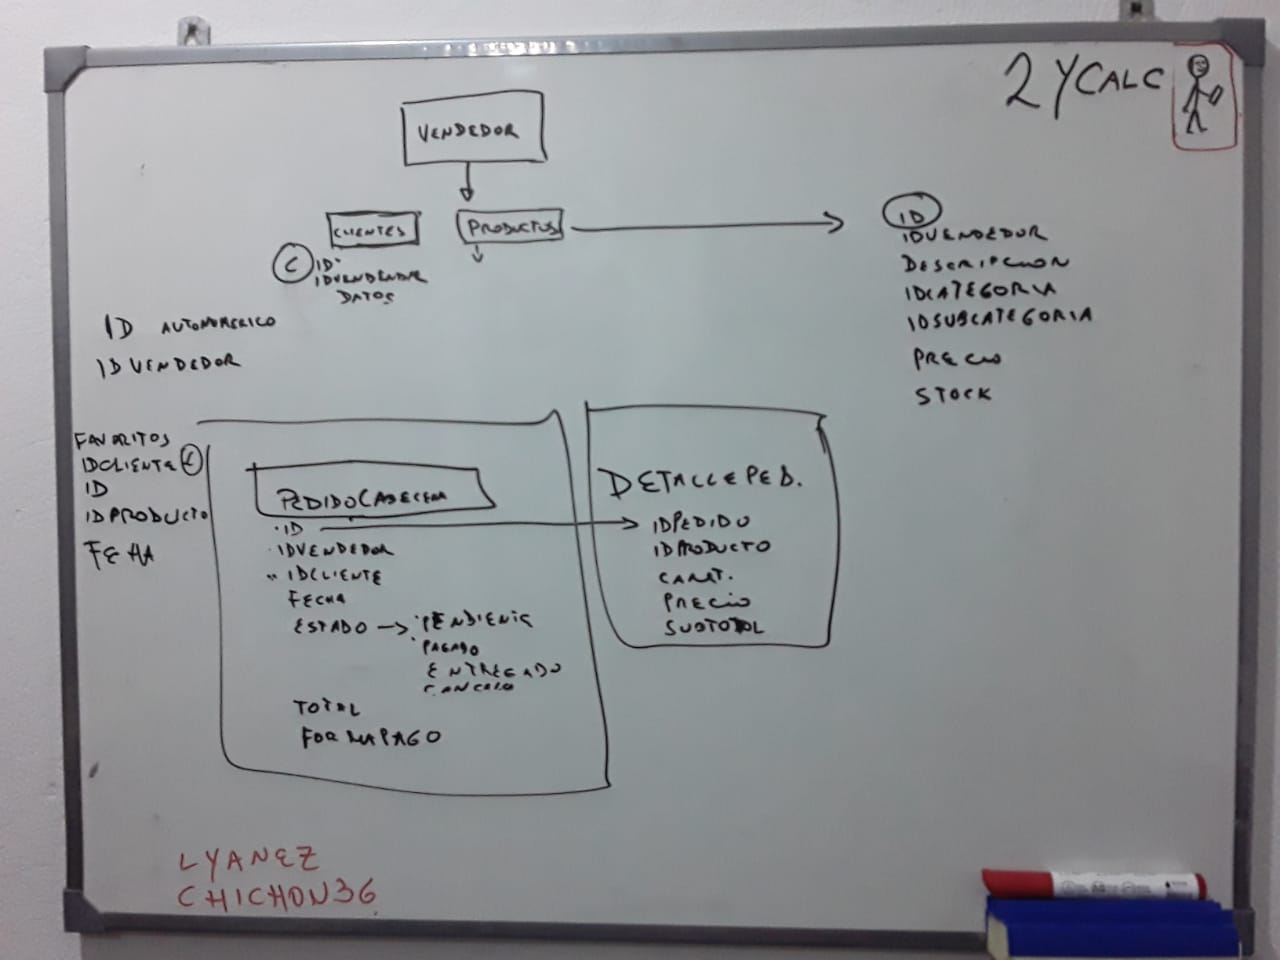 2 YCALC
VENDEDOR
CLIENTES
PRODUCTOS
C
ID
IDVENDEDOR
DATOS
ID
IDVENDEDOR
DESCRIPCION
IDCATEGORIA
IDSUBCATEGORIA
PRECIO
STOCK
ID AUTONUMERICO
IDVENDEDOR
FAVORITOS
IDCLIENTE C
ID
IDPRODUCTO
FECHA
PEDIDOCABECERA
ID
IDVENDEDOR
IDCLIENTE
FECHA
ESTADO → PENDIENTE
PAGADO
ENTREGADO
CANCELO
TOTAL
FORMAPAGO
DETALLEPED.
IDPEDIDO
IDPRODUCTO
CANT.
PRECIO
SUBTOTAL
LYANEZ
CHICHON36